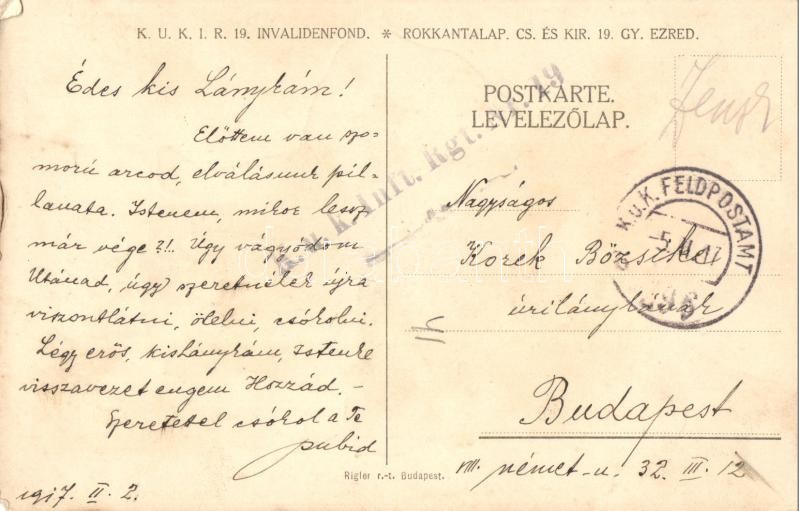 K. U. K. I. R. 19. INVALIDENFOND. * ROKKANTALAP. CS. ÉS KIR. 19. GY. EZRED.
Édes kis Lánykám!
Előttem van szo-
morú arcod, elválásunk pil-
lanata. Istenem, mikor lesz
már vége?!. Úgy vágyódom
Utánad, úgy szeretnélek újra
viszontlátni, ölelni, csókolni.
Légy erős, kislánykám, Istenke
visszavezet engem Hozzád. –
Szeretettel csókol a Te
pubid
1917. II. 2.
POSTKARTE.
LEVELEZŐLAP.
K. u. k. Inft. Rgt. Nr. 19
K.U.K. FELDPOSTAMT
Nagyságos
Korek Bözsike
úrilánynak
Budapest
VIII. német-u. 32. III. 12
Rigler r.-t. Budapest.